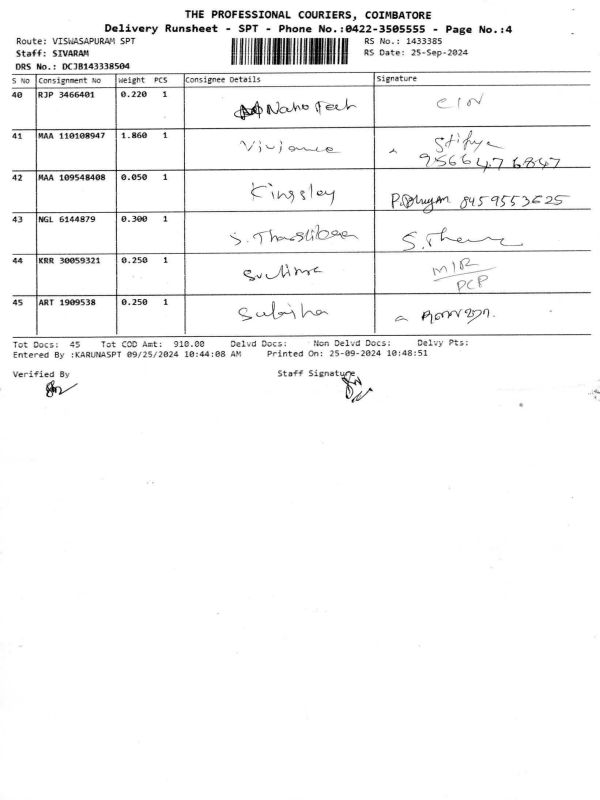 THE PROFESSIONAL COURIERS, COIMBATORE
Delivery Runsheet - SPT - Phone No.:0422-3505555 - Page No.:4
Route: VISWASAPURAM SPT RS No.: 1433385
Staff: SIVARAM RS Date: 25-Sep-2024
DRS No.: DCJB143338504
S No Consignment No Weight PCS Consignee Details Signature
40 RJP 3466401 0.220 1 Nano Tech
41 MAA 110108947 1.860 1
9566476847
42 MAA 109548408 0.050 1 Kingsley 8459553625
43 NGL 6144879 0.300 1 S.
44 KRR 30059321 0.250 1
PCP
45 ART 1909538 0.250 1
Tot Docs: 45 Tot COD Amt: 910.00 Delvd Docs: Non Delvd Docs: Delvy Pts:
Entered By :KARUNASPT 09/25/2024 10:44:08 AM Printed On: 25-09-2024 10:48:51
Verified By Staff Signature